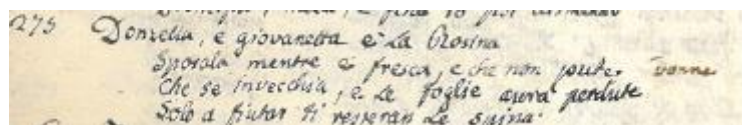 275 Donzella, e giovanetta è La Rosina
Sposala mentre è fresca, e che non pute, Donne
Che se invecchia, e Le foglie avrà perdute
Solo a fiutar ti resteran Le spina.